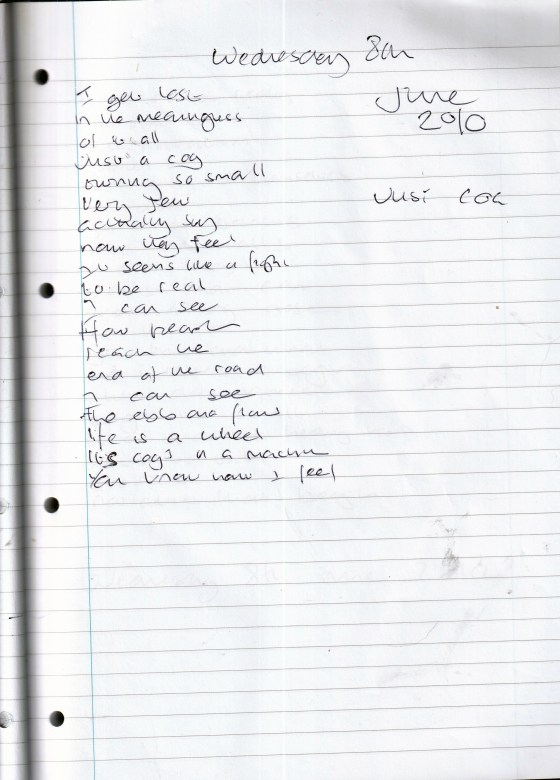 Wednesday 8th
June
2010
I get lost
in the meaningless
of it all
just a cog
turning so small
very few
actually say
how they feel
It seems like a fight
to be real
I can see
How people
reach the
end of the road
I can see
The ebb and flow
life is a wheel
It's cogs in a machine
You know how I feel
Just cog